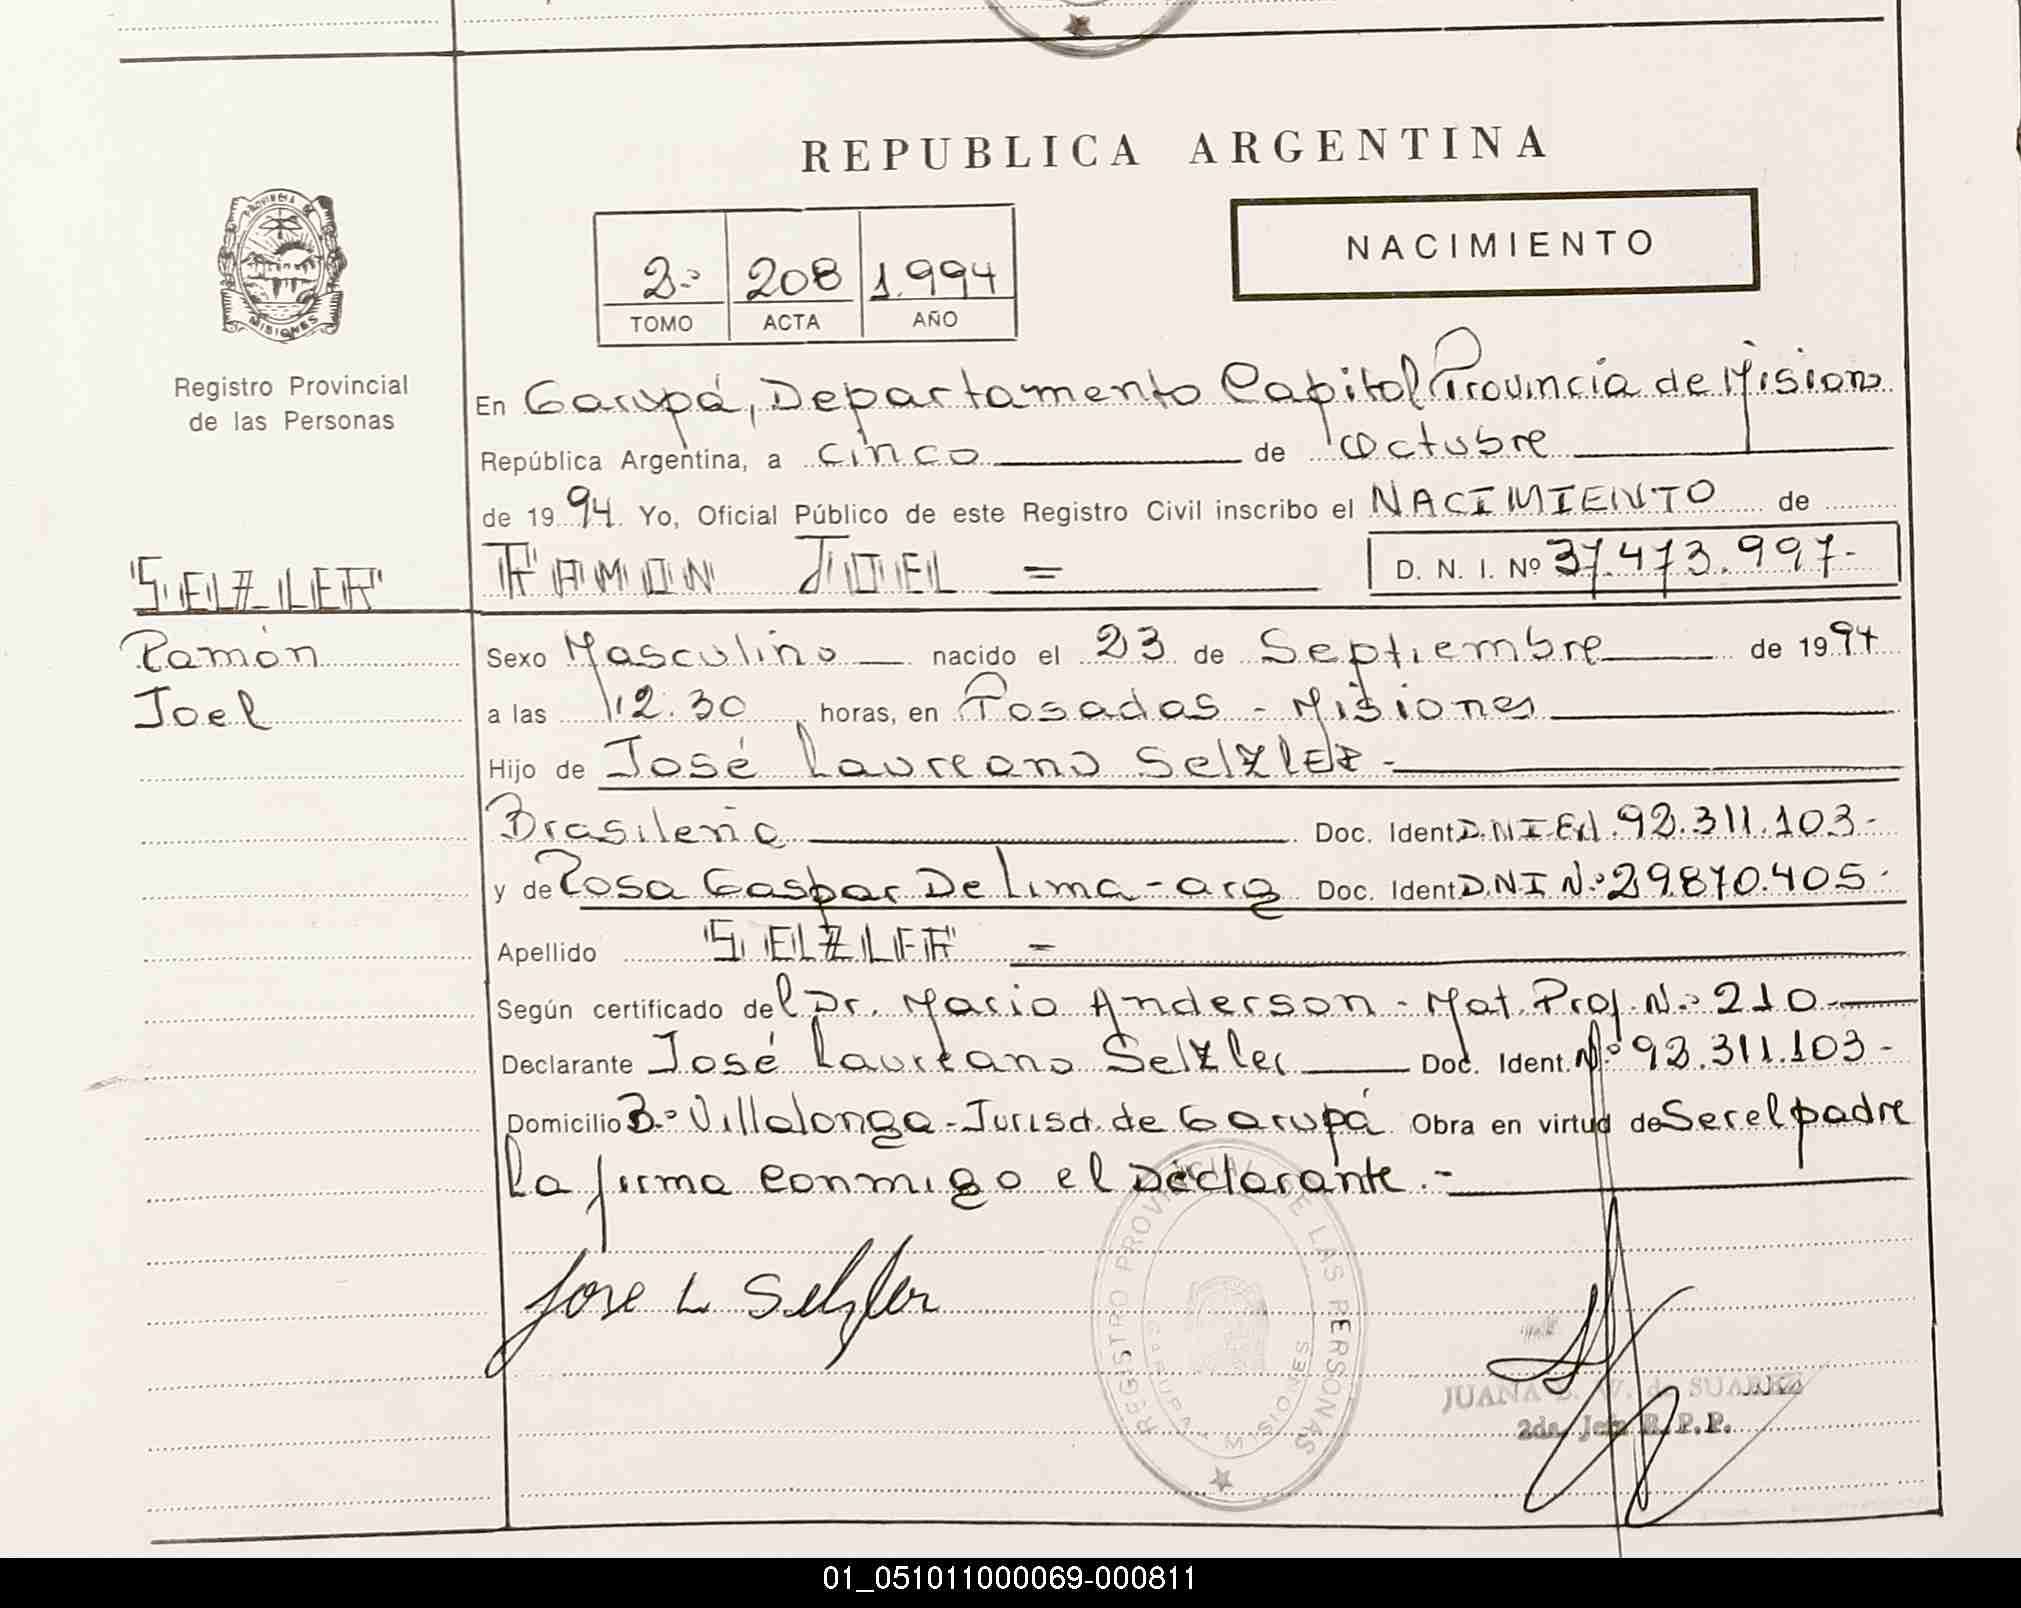 REPUBLICA ARGENTINA
NACIMIENTO
2º 208 1.994
TOMO ACTA AÑO
PROVINCIA DE MISIONES
Registro Provincial
de las Personas
En Garupá, Departamento Capital Provincia de Misiones
República Argentina, a cinco de octubre
de 1994. Yo, Oficial Público de este Registro Civil inscribo el NACIMIENTO de
"SELZLER" RAMON JOEL = D. N. I. Nº 37.473.997-
Ramón
Joel
Sexo Masculino nacido el 23 de Septiembre de 1994
a las 12.30 horas, en Posadas - Misiones
Hijo de José Laureano SelzlER -
Brasileña Doc. Ident. D.N.I. Ex. 92.311.103-
y de Rosa Gaspar De Lima - arg Doc. Ident. D.N.I Nº 29.870.405-
Apellido "SELZLER" =
Según certificado del Dr. Mario Anderson - Mat. Prof. Nº 210-
Declarante José Laureano Selzler Doc. Ident. Nº 92.311.103-
Domicilio Bº Villalonga - Jurisd. de Garupá. Obra en virtud de Ser el padre
La firma conmigo el Declarante.-
Jose L Selzler
REGISTRO PROVINCIAL DE LAS PERSONAS
GARUPA - MISIONES
JUANA de SUAREZ
2da. Jefa R.P.P.
01_051011000069-000811